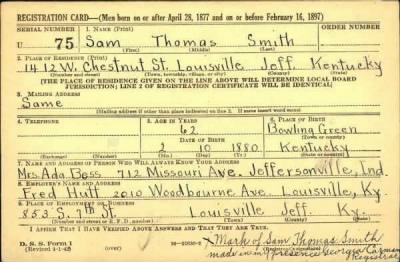 REGISTRATION CARD—(Men born on or after April 28, 1877 and on or before February 16, 1897)
SERIAL NUMBER 1. NAME (Print) ORDER NUMBER
U 75 Sam Thomas Smith
(First) (Middle) (Last)
2. PLACE OF RESIDENCE (Print)
1412 W. Chestnut St. Louisville Jeff. Kentucky
(Number and street) (Town, township, village, or city) (County) (State)
[THE PLACE OF RESIDENCE GIVEN ON THE LINE ABOVE WILL DETERMINE LOCAL BOARD
JURISDICTION; LINE 2 OF REGISTRATION CERTIFICATE WILL BE IDENTICAL]
3. MAILING ADDRESS
Same
[Mailing address if other than place indicated on line 2. If same insert word same]
4. TELEPHONE 5. AGE IN YEARS 6. PLACE OF BIRTH
62 Bowling Green
DATE OF BIRTH (Town or county)
2 10 1880 Kentucky
(Mo.) (Day) (Yr.) (State or country)
7. NAME AND ADDRESS OF PERSON WHO WILL ALWAYS KNOW YOUR ADDRESS
Mrs. Ada Boss 712 Missouri Ave. Jeffersonville, Ind.
8. EMPLOYER'S NAME AND ADDRESS
Fred Hutt 2010 Woodbourne Ave. Louisville, Ky.
9. PLACE OF EMPLOYMENT OR BUSINESS
853 S. 7th St Louisville Jeff. Ky.
(Number and street or R. F. D. number) (Town) (County) (State)
I AFFIRM THAT I HAVE VERIFIED ABOVE ANSWERS AND THAT THEY ARE TRUE.
D. S. S. Form 1 X Mark of Sam Thomas Smith
(Revised 4-1-42) made in my presence Georgia
Registrar